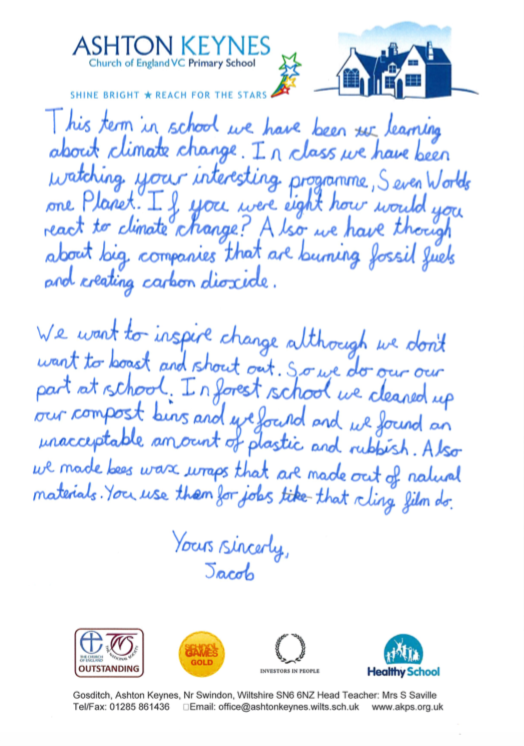 ASHTON KEYNES
Church of England VC Primary School
SHINE BRIGHT ★ REACH FOR THE STARS
This term in school we have been we learning
about climate change. In class we have been
watching your interesting programme, Seven Worlds
one Planet. If you were eight how would you
react to climate change? Also we have though
about big companies that are burning fossil fuels
and creating carbon dioxide.
We want to inspire change although we don't
want to boast and shout out. So we do our our
part at school. In forest school we cleaned up
our compost bins and we found and we found an
unacceptable amount of plastic and rubbish. Also
we made bees wax wraps that are made out of natural
materials. You use them for jobs like that cling film do.
Yours sincerly,
Jacob
THE CHURCH
OF ENGLAND
OUTSTANDING
GAMES
GOLD
INVESTORS IN PEOPLE
Healthy School
Gosditch, Ashton Keynes, Nr Swindon, Wiltshire SN6 6NZ Head Teacher: Mrs S Saville
Tel/Fax: 01285 861436 □Email: office@ashtonkeynes.wilts.sch.uk www.akps.org.uk